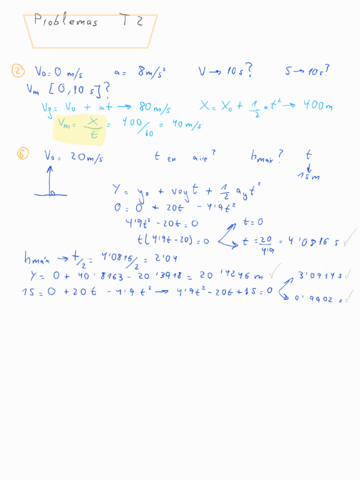 Problemas T2
② V₀ = 0 m/s a = 8 m/s² V → 10s? S → 10s?
Vm [0,10 s]?
Vf = V₀ + at → 80 m/s X = X₀ + 1/2 at² → 400m
Vm = X/t = 400/10 = 40 m/s
⑥ V₀ = 20 m/s t en aire? hmax? t ↓ 15m
Y = y₀ + v₀y t + 1/2 ay t²
0 = 0 + 20t - 4'9t²
4'9t² - 20t = 0 t = 0
t(4'9t - 20) = 0 t = 20/4'9 = 4'0816 s ✓
hmáx → t/2 = 4'0816/2 = 2'04
Y = 0 + 40'8163 - 20'3918 = 20'4246 m ✓ 3'0914 s ✓
15 = 0 + 20t - 4'9t² → 4'9t² - 20t + 15 = 0 0'9902 s ✓